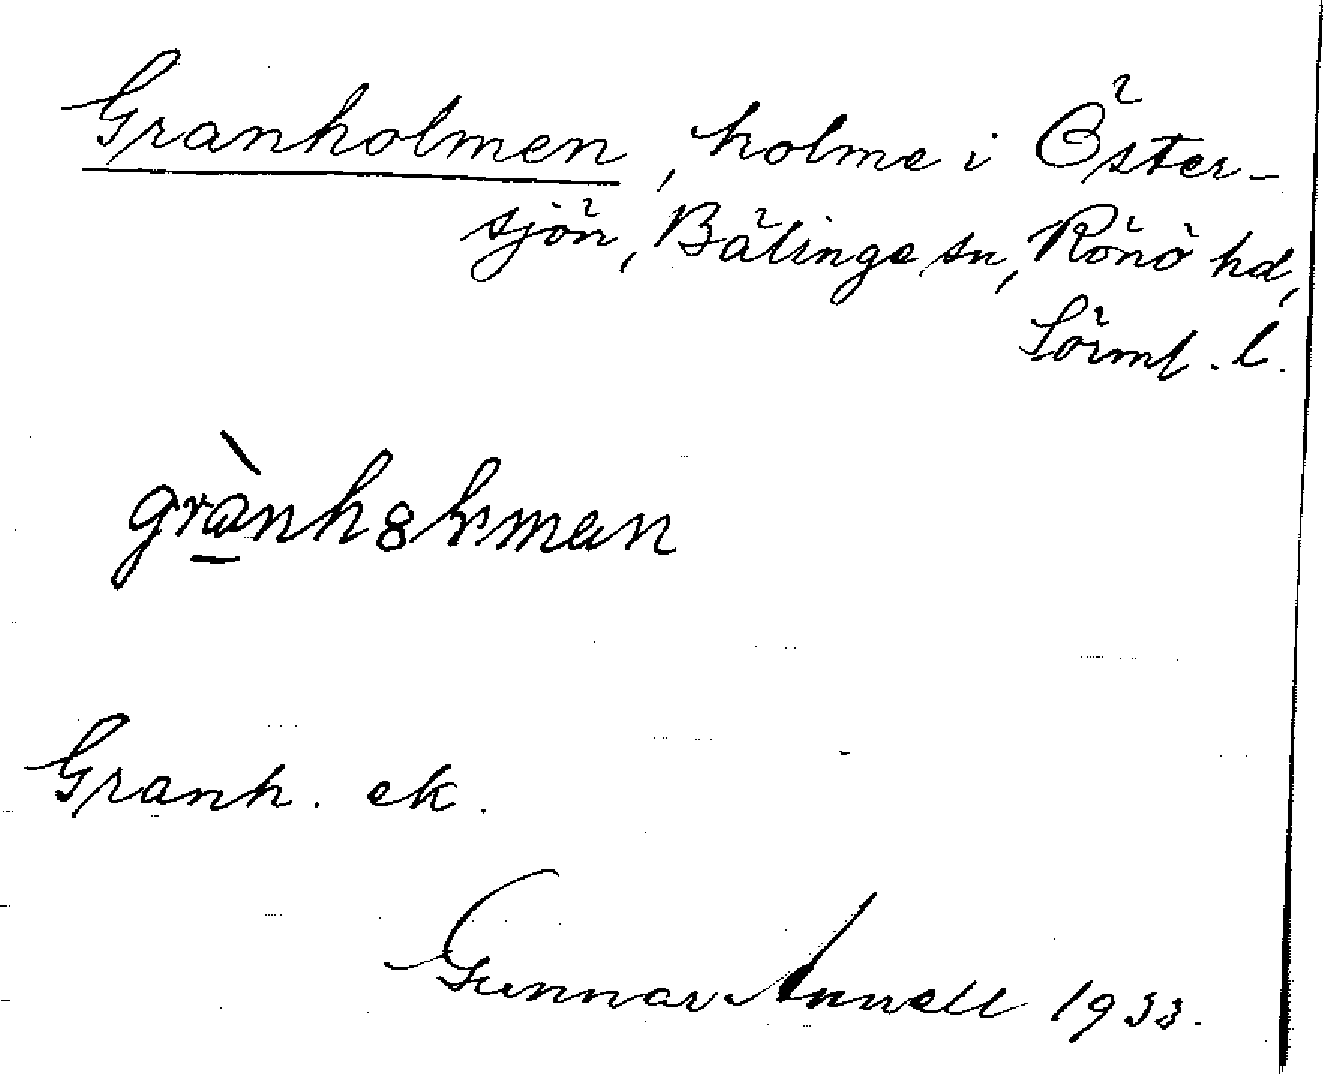 Granholmen, holme i Öster-
sjön, Bälinge sn, Rönö hd,
Sörml. l.
grànhȣlmen
Granh. ek.
Gunnar Anwell 1933.